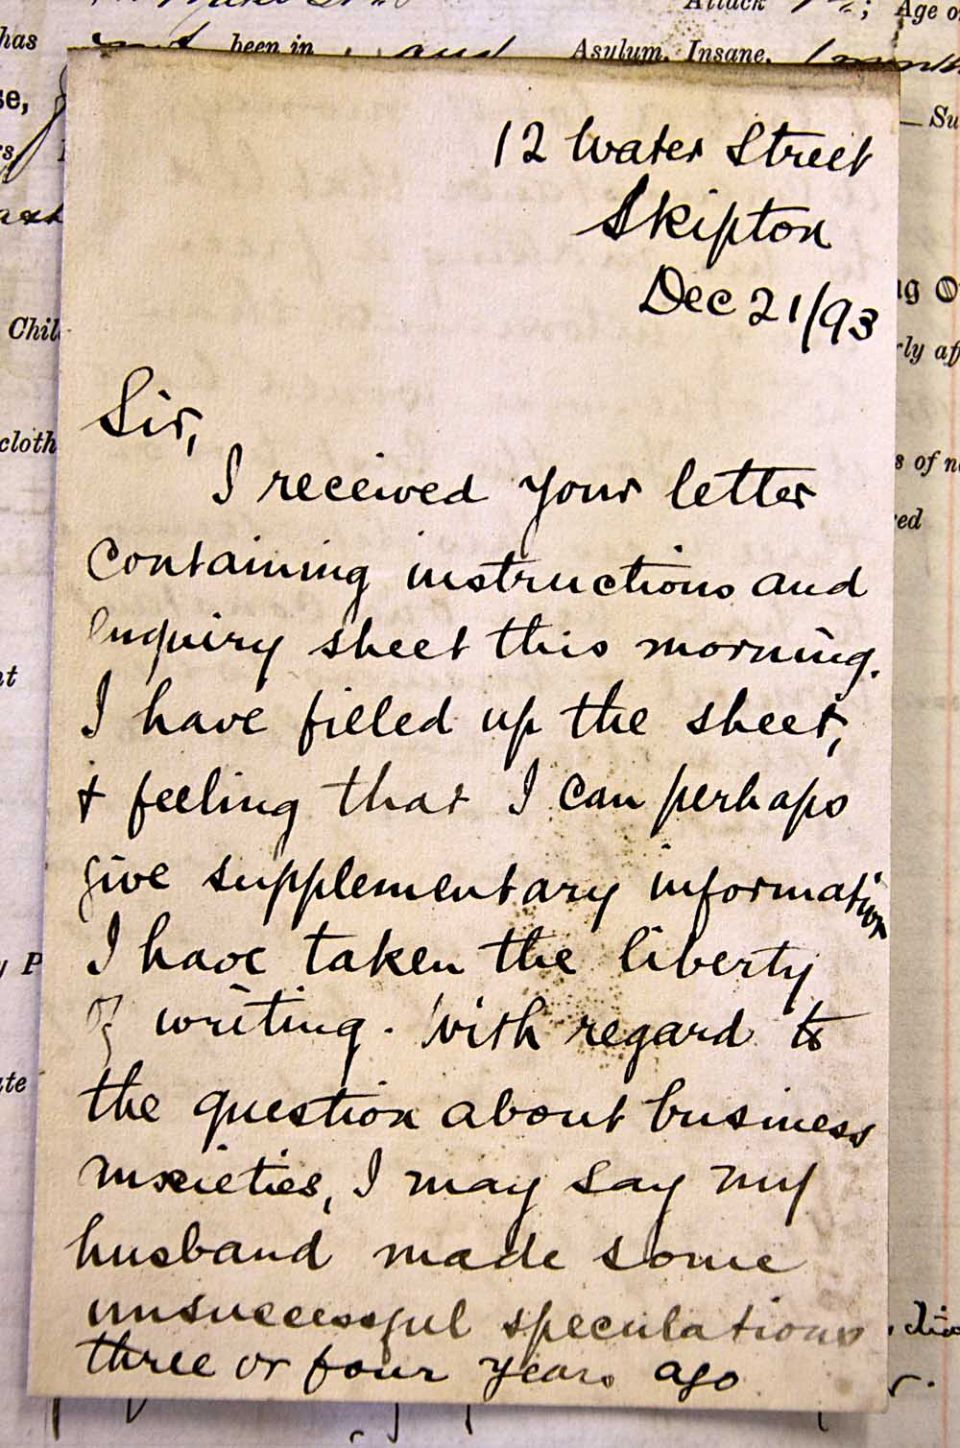 Attack
Age
has
been in
and
Asylum, Insane,
12 Water Street
Skipton
Dec 21/93
Chil
cloth
Sir,
I received your letter
containing instructions and
enquiry sheet this morning.
I have filled up the sheet,
& feeling that I can perhaps
give supplementary information
I have taken the liberty
of writing. With regard to
the question about business
anxieties, I may say my
husband made some
unsuccessful speculations
three or four years ago